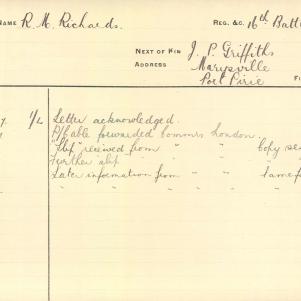 NAME R. M. Richards. REG. &C. 16th Batt
NEXT OF KIN J. P. Griffiths
ADDRESS Marysville
Port Pirie
1/L Letter acknowledged.
forwarded London.
received from " " Copy se
Further " " "
Later information from " " same f
" " " "